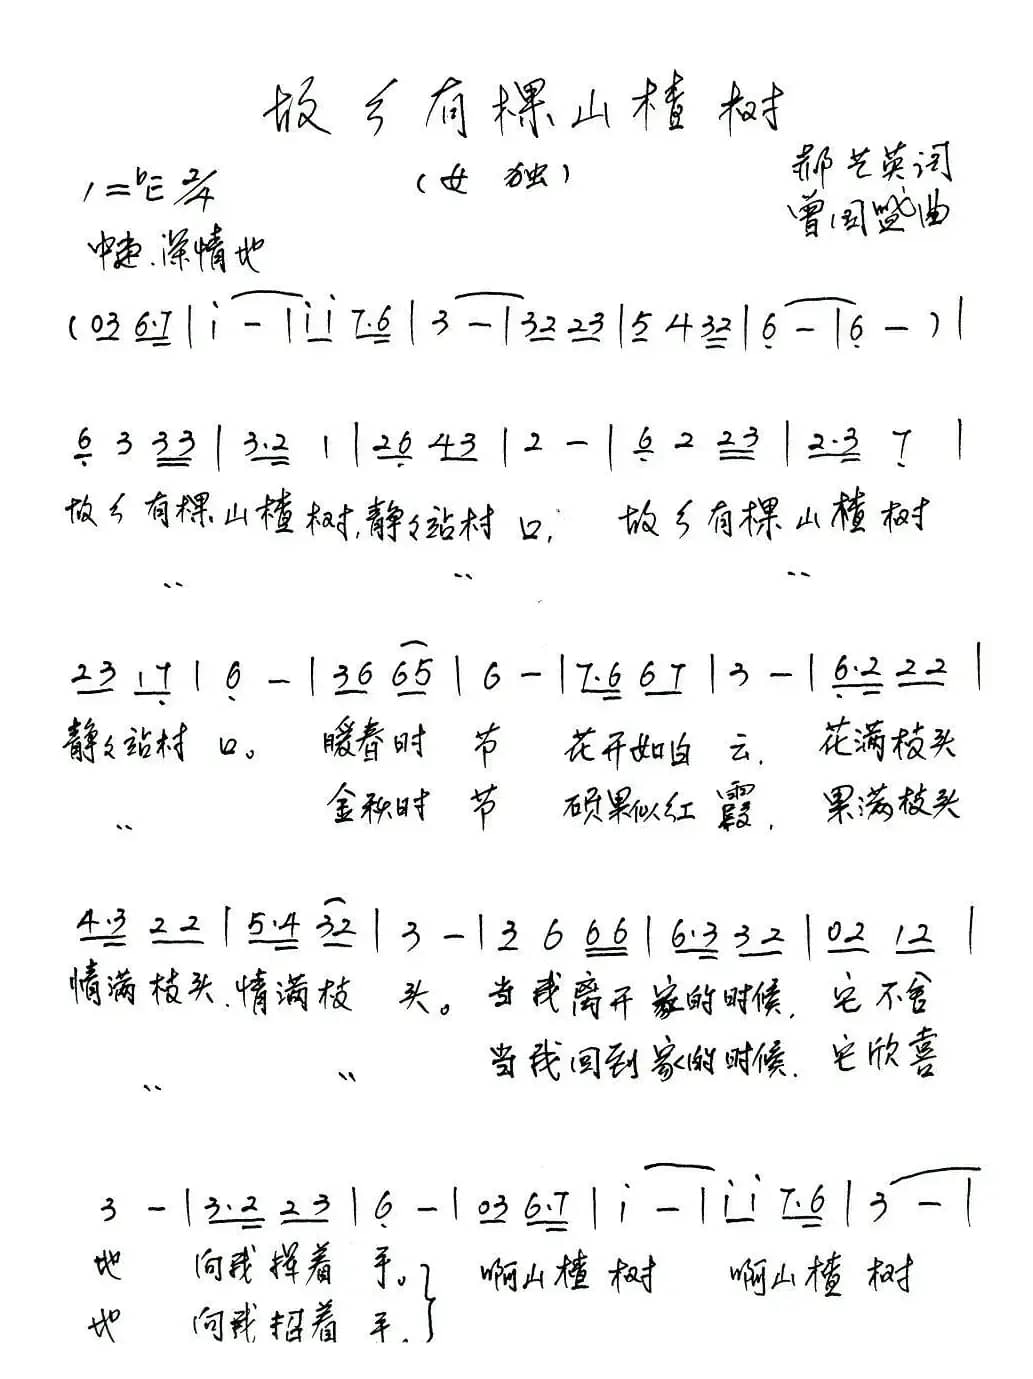 故乡有棵山楂树
(女 独)
郝艺英词
1=♭E 2/4
曾国盛曲
中速.深情地
(03 6·7|i -|ii 7·6|3 -|32 23|5 4 32|6 -|6 -)|
6 3 33|3·2 1|26 43|2 -|6 2 23|2·3 7|
故乡有棵山楂树,静々站村口; 故乡有棵山楂树
〃 〃 〃
23 17|6 -|36 65|6 -|7·6 67|3 -|6·2 22|
静々站村口。 暖春时节 花开如白云, 花满枝头
〃 金秋时节 硕果似红霞, 果满枝头
4·3 22|5·4 32|3 -|3 6 66|6·3 32|02 12|
情满枝头,情满枝头。当我离开家的时候, 它不舍
〃 〃 当我回到家的时候, 它欣喜
3 -|3·2 23|6 -|03 6·7|i -|ii 7·6|3 -|
地 向我挥着手。} 啊山楂树 啊山楂树
地 向我招着手.